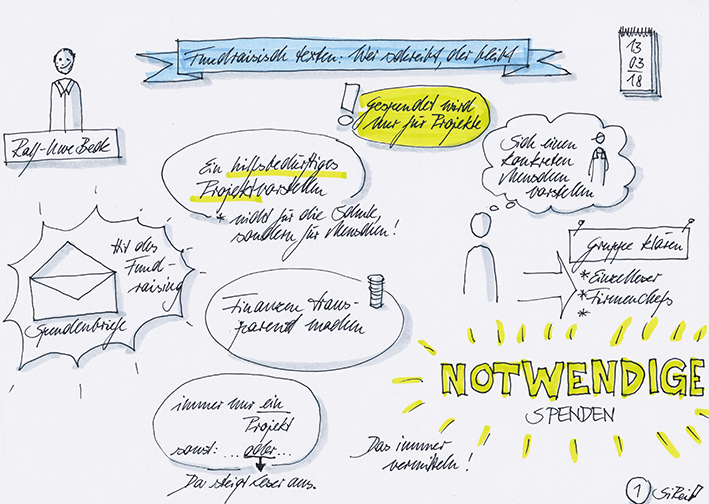 Fundraisisch texten: Wer schreibt, der bleibt
13
03
18
Ralf-Uwe Beck
! Gespendet wird
nur für Projekte
Ein hilfsbedürftiges
Projekt vorstellen
* nicht für die Schule,
sondern für Menschen!
Sich einen
konkreten
Menschen
vorstellen
Hit des
Fund-
raising
Spendenbriefe
Gruppe klären
* Einzelleser
* Firmenchefs
*
Finanzen trans-
parent machen
NOTWENDIGE
SPENDEN
immer nur ein
Projekt
sonst: ...oder...
Da steigt Leser aus.
Das immer
vermitteln!
1